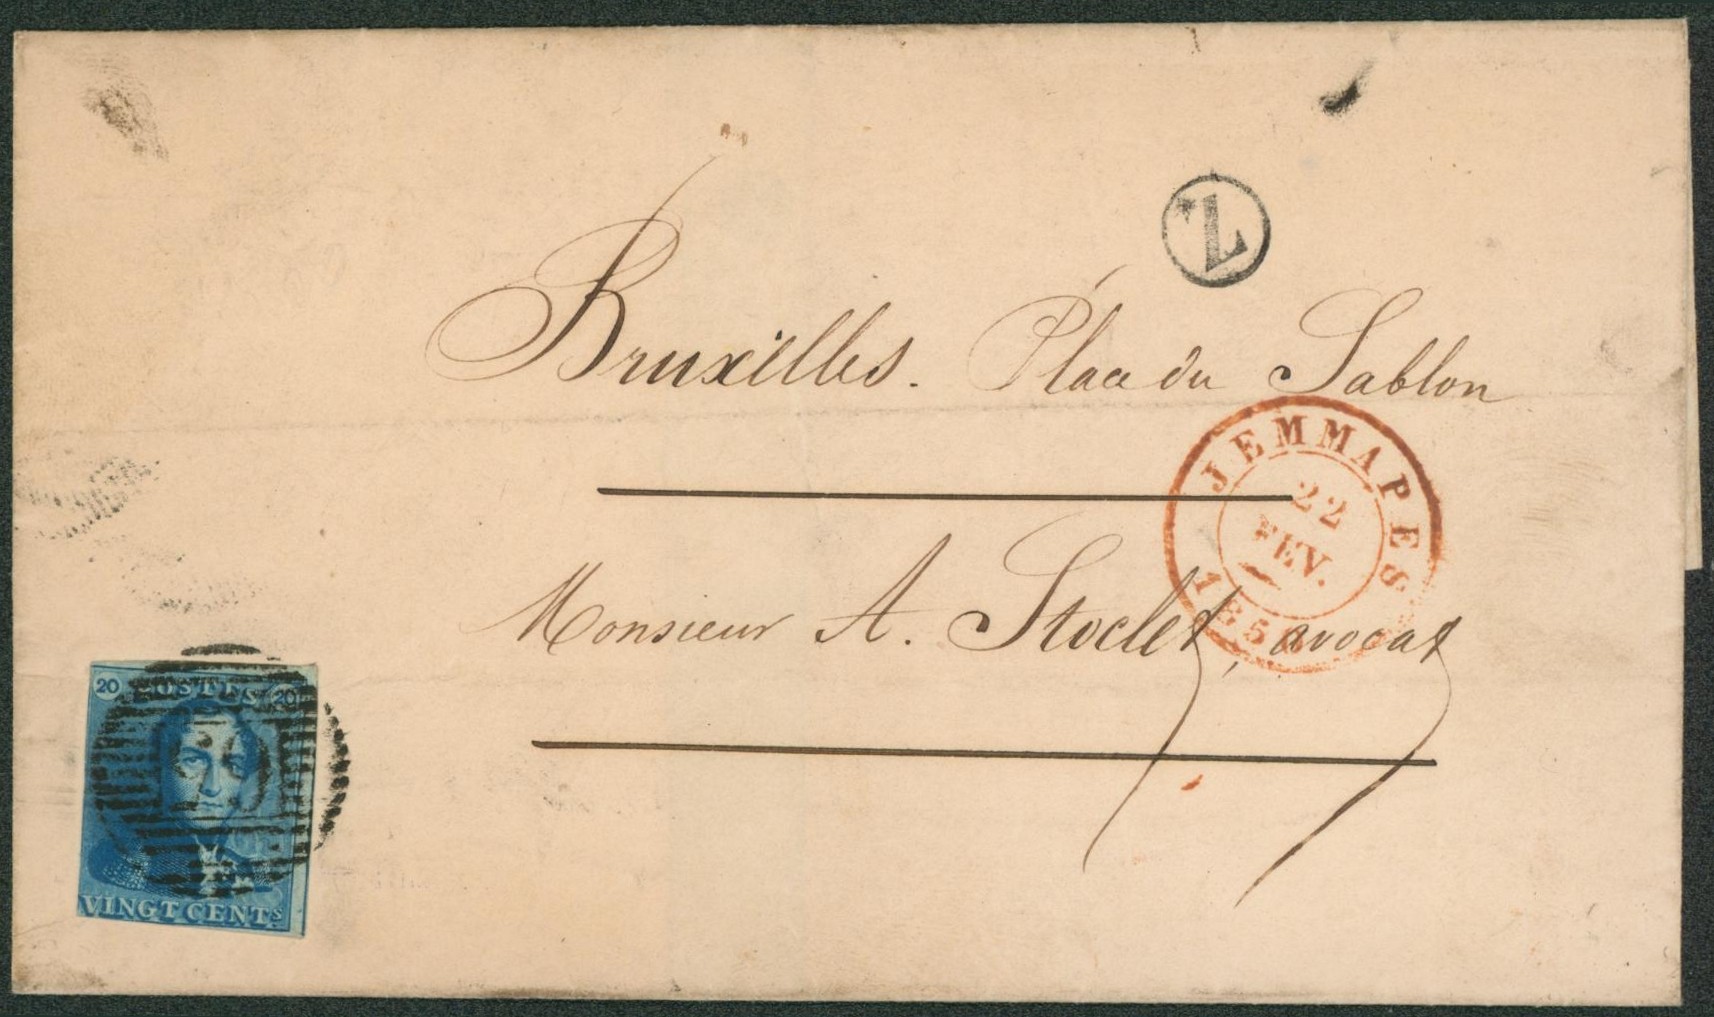 Z
Bruxelles. Place du Sablon
JEMMAPES
22
FEV.
185
Monsieur A. Stoclet, avocat
20 POSTES 20
VINGT CENTS.